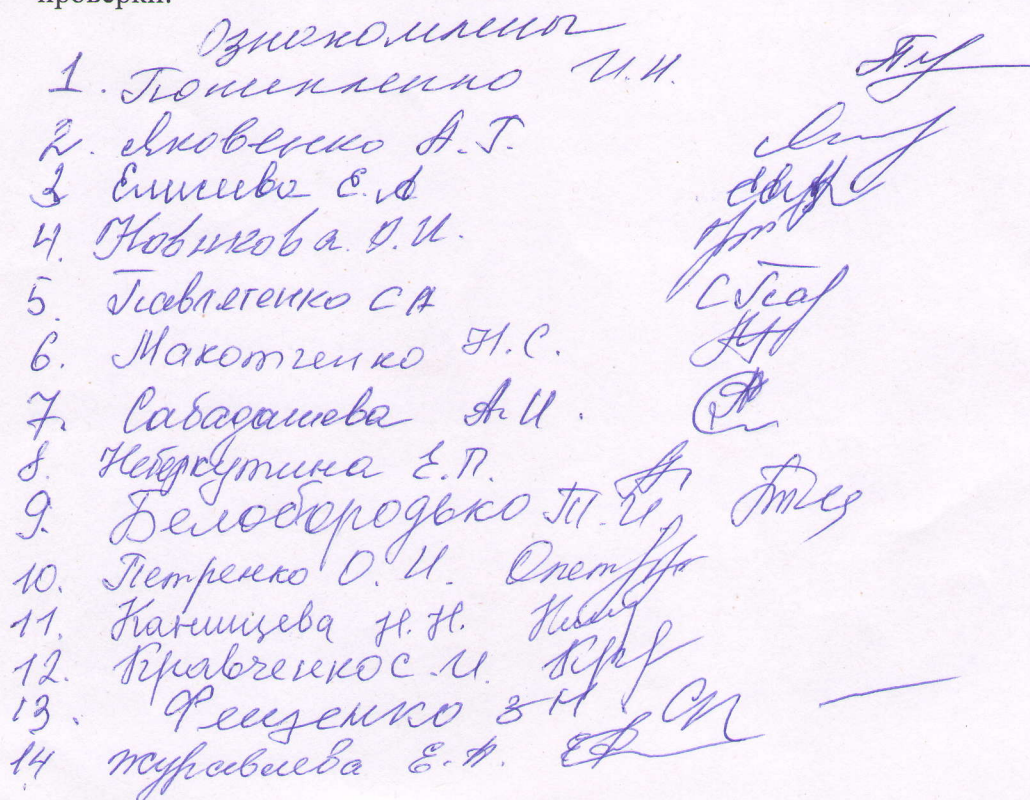 проверки.
Ознакомлены
1. И.Н.
2. Яковенко А.Г.
3 Елисеева Е.А
4. Новикова О.И.
5. Павлятенко СА
6. Макотченко Н.С.
7. Сабадашева А.И.
8. Е.П.
9. Белобородько Т.И.
10. Петренко О.И.
11. Канищева Н.Н.
12. Кравченко С.И.
13. Фещенко З Н
14 Журавлева Е.А.